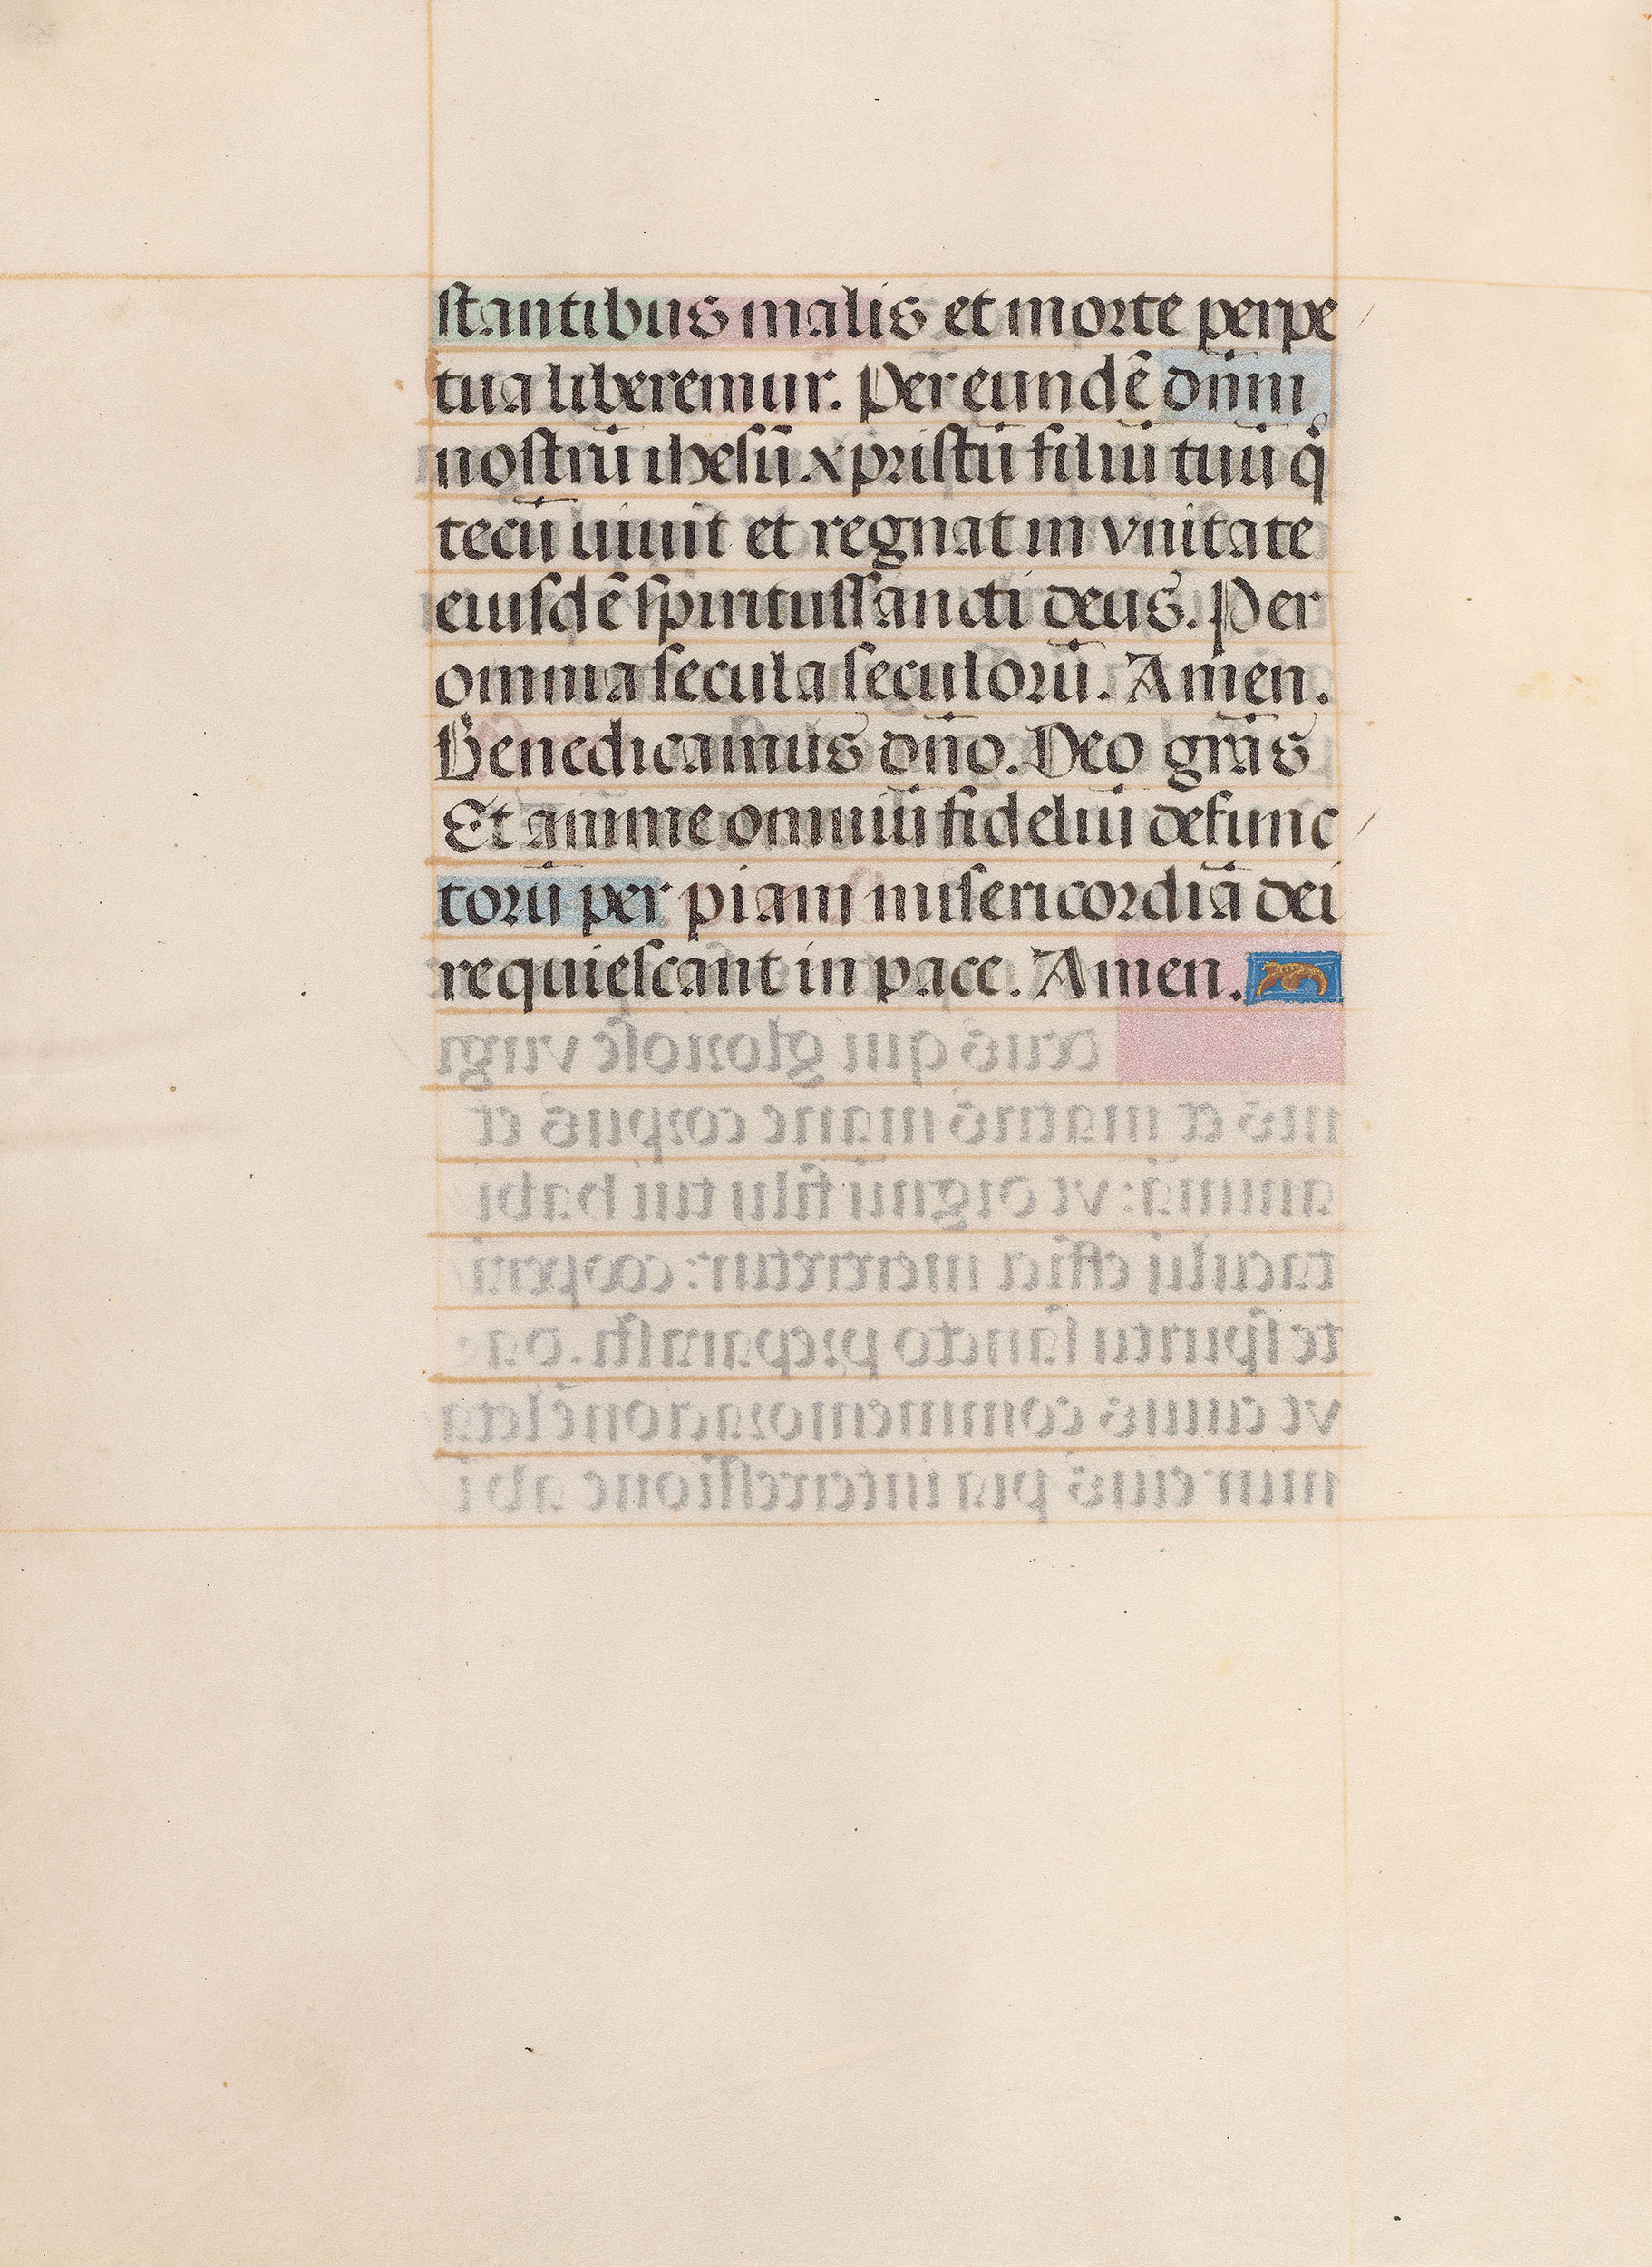 stantibus malis et morte perpe
tua liberemur. Per eundē dn̄m
nostrū ihesū xpristū filiū tuū q̇
tecū uiuit et regnat in vnitate
eiusdē spiritussancti deus. Per
omnia secula seculorū. Amen.
Benedicamus dn̄o. Deo gr̄as
Et anime omniū fideliū defunc
torū per piam misericordiā dei
requiescant in pace. Amen.